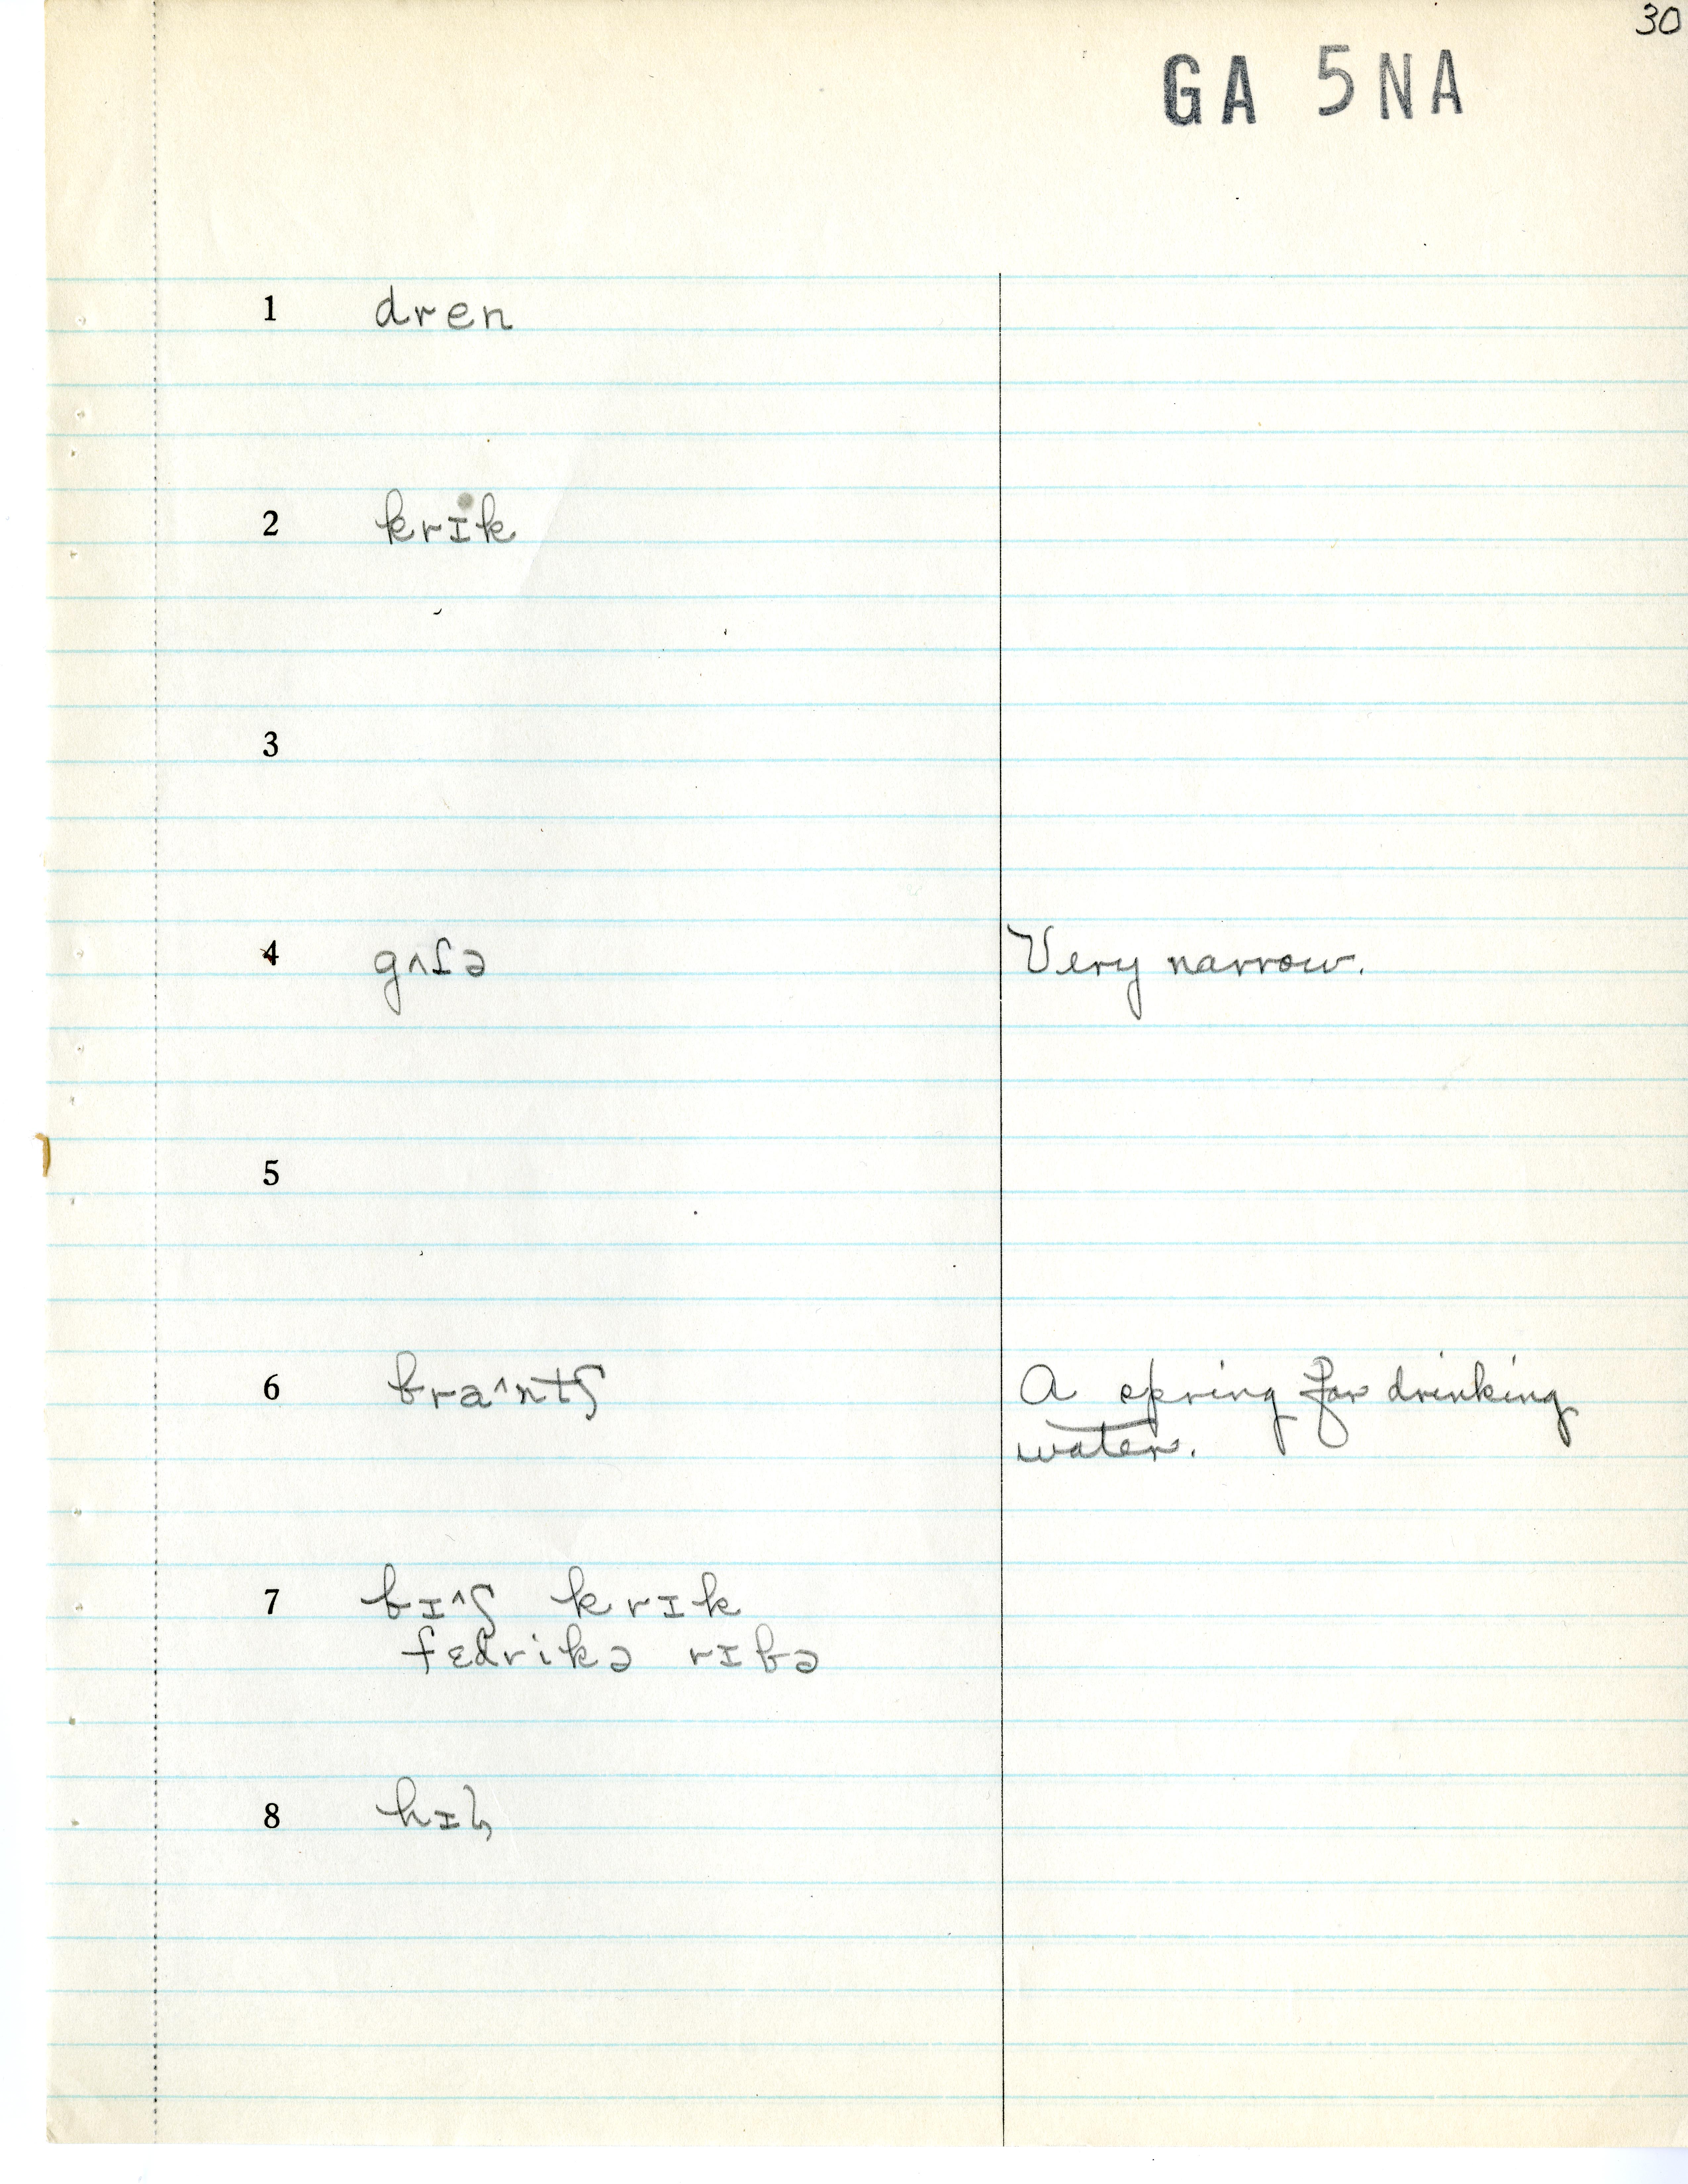 30
GA 5NA
1 dren
2 krɪk
3
4 gʌɾə Very narrow.
5
6 bra^ntʃ A spring for drinking
water.
7 bɪ^ʃ krɪk
fɛdrikə rɪbə
8 hɪɫ